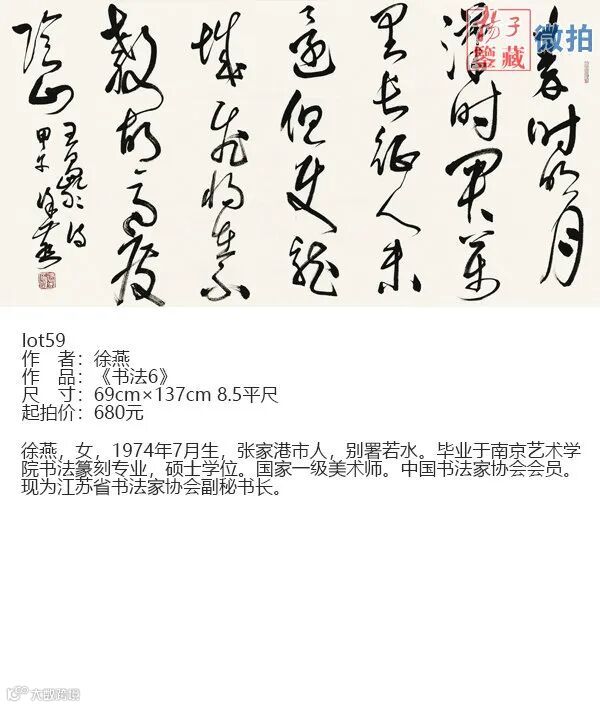 秦时明月
漢时関萬
里长征人未
還但使龙
城飞将在不
教胡马度
陰山
王昌龄诗
甲午徐燕
揚子鑒藏
微拍
lot59
作　者：徐燕
作　品：《书法6》
尺　寸：69cm×137cm 8.5平尺
起拍价：680元
徐燕，女，1974年7月生，张家港市人，别署若水。毕业于南京艺术学
院书法篆刻专业，硕士学位。国家一级美术师。中国书法家协会会员。
现为江苏省书法家协会副秘书长。
大数跨境